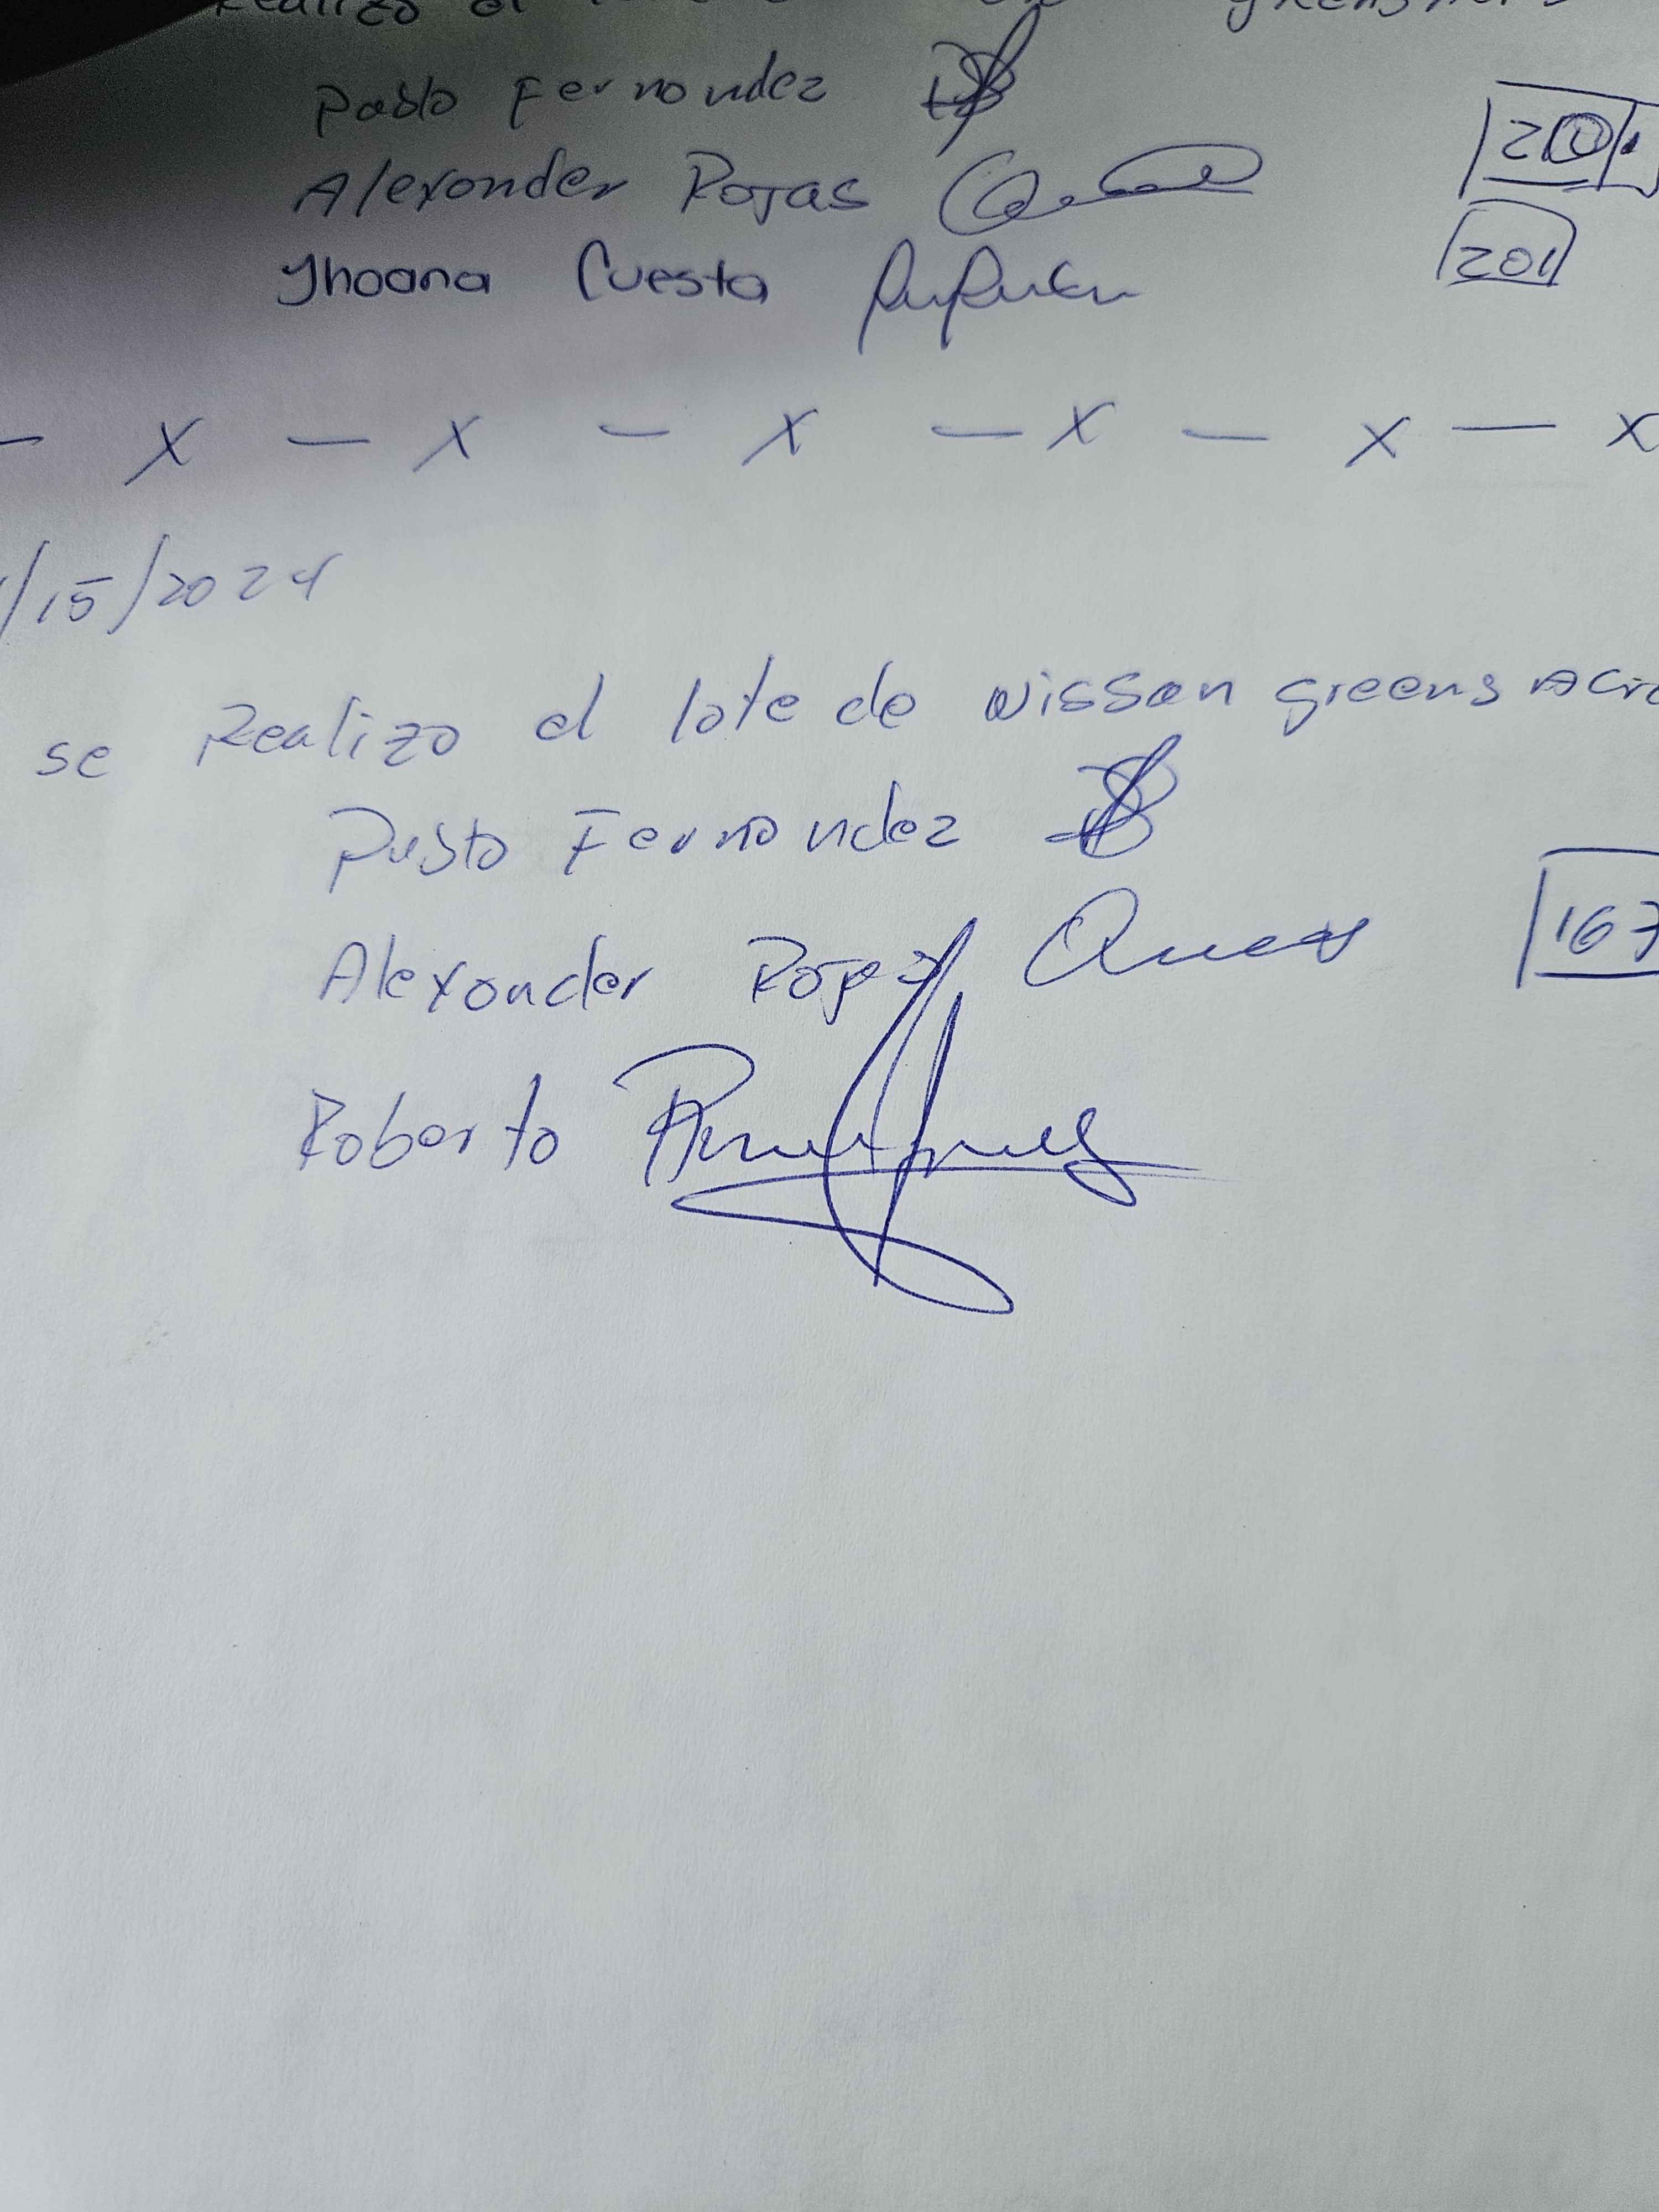 Realizo el
Pablo Fernandez
Alexander Rojas
Jhoana Cuesta 201
— x — x — x — x — x — x
/15/2024
se Realizo el lote de Nissan greens Acre
Pablo Fernandez
Alexander Rojas 167
Roberto